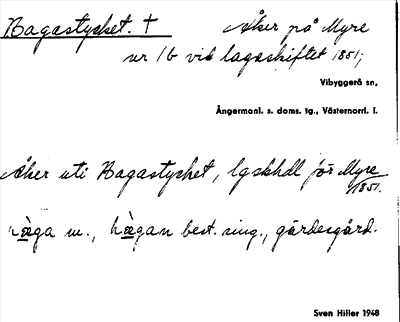 Bagastycket. † Åker på Myre
nr 1b vid lagaskiftet 1851;
Vibyggerå sn,
Ångermanl. s. doms. tg., Västernorrl. l.
Åker uti Bagastycket, lgskhdl för Myre
1851.
hàga m., hàgan best. sing., gärdesgård.
Sven Hitler 1948